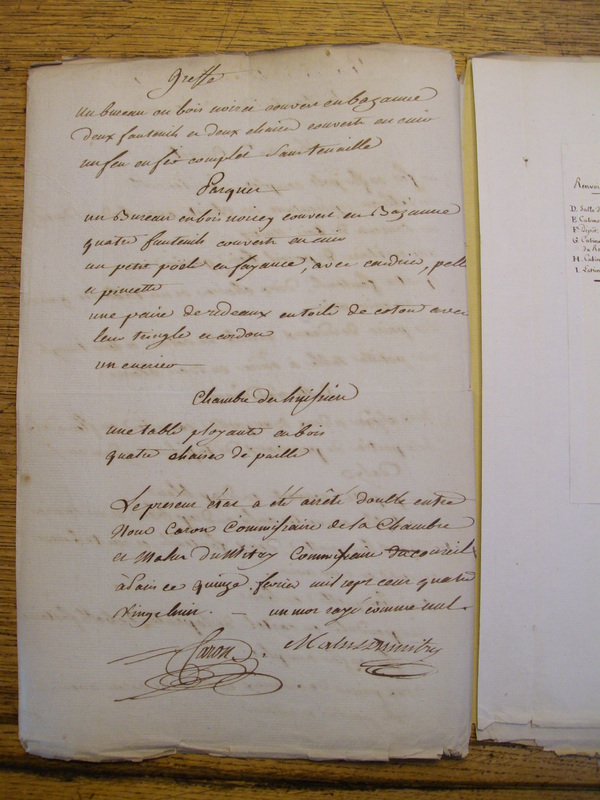 Greffe
un bureau en bois noirci couvert en bazanne
deux fauteuils et deux chaises couverts en cuir
un feu en fer complet sans tenaille
Parquier
un Bureau en bois noircy couvert en Bazanne
quatre fauteuils couverts en cuir
un petit poële en fayance, avec cendrier, pelle
et pincette
une paire de rideaux en toile de coton avec
leur tringle et cordon
un encrier
Chambre des huissiers
une table ployante en bois
quatre chaises de paille
Le present état a été arrêté double entre
Nous Caron Commissaire de la Chambre
et Malus Dumitry Commissaire du conseil
à Paris ce quinze fevrier mil sept cent quatre
vingt huit. — un mot rayé comme nul.
Caron. Malus Dumitry
Renvoi
D. Salle
E. Cabin
F. Dépôt
G. Cabin
H. Cabin